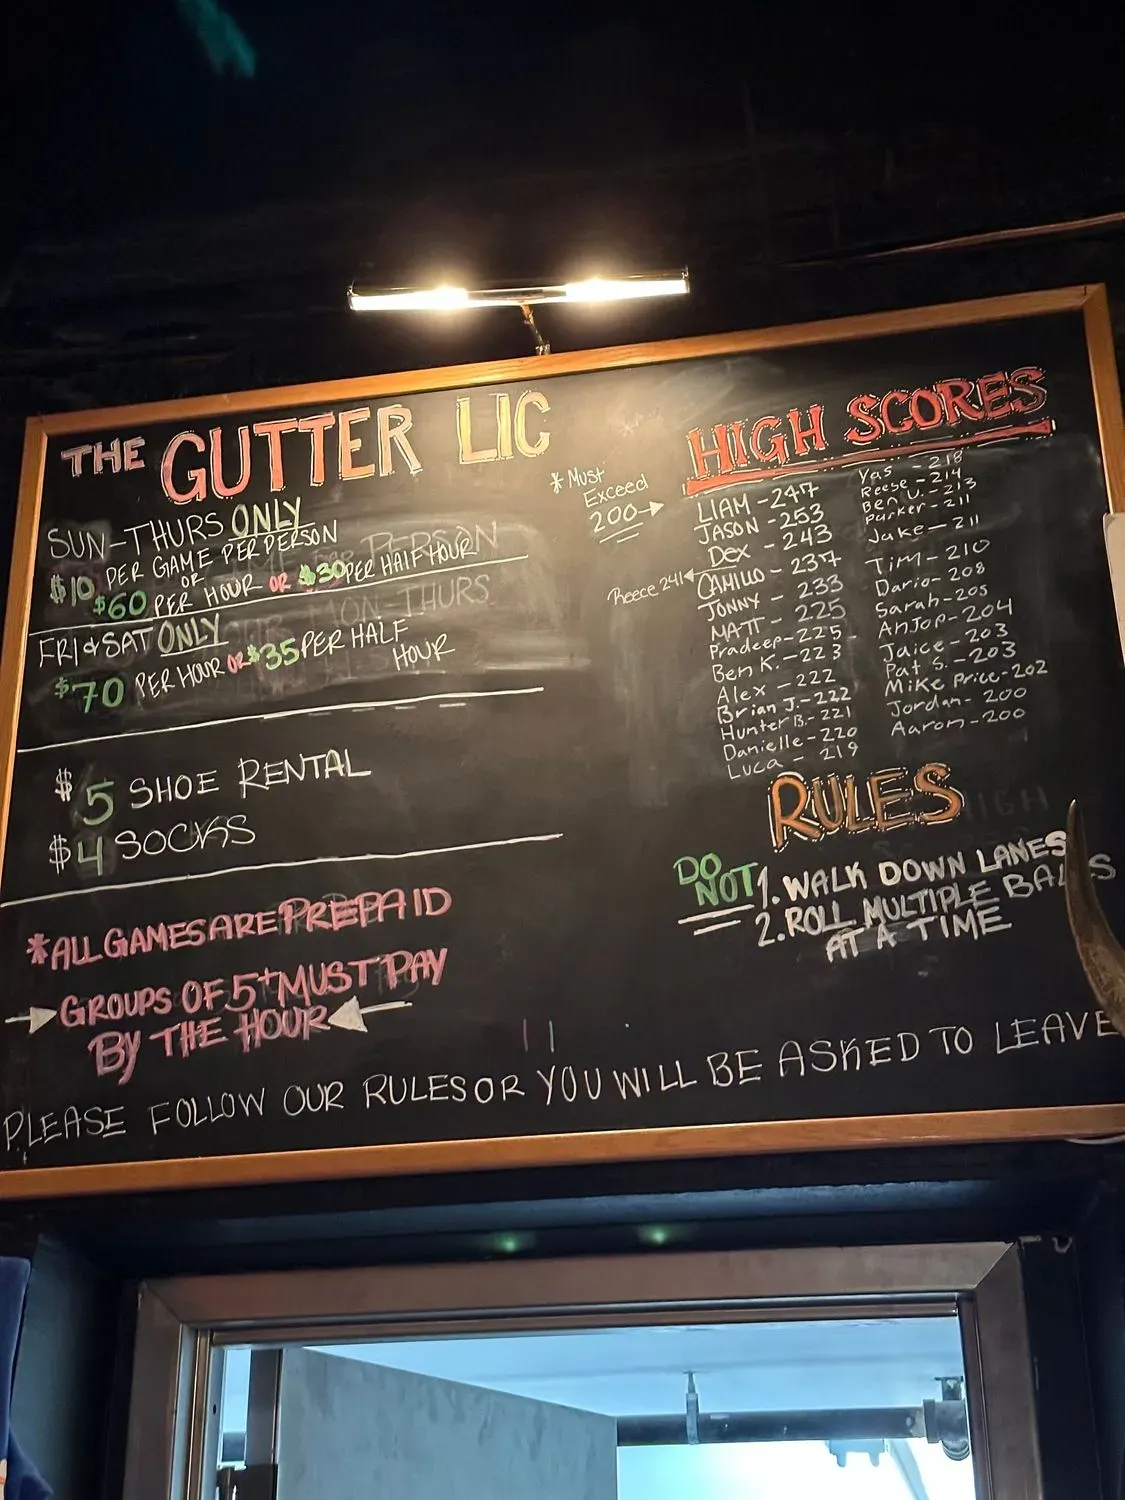 THE GUTTER LIC
SUN-THURS ONLY
$10 PER GAME PER PERSON
OR
$60 PER HOUR OR $30 PER HALF HOUR
FRI & SAT ONLY
$70 PER HOUR OR $35 PER HALF
HOUR
$5 SHOE RENTAL
$4 SOCKS
*ALL GAMES ARE PREPAID
GROUPS OF 5+ MUST PAY
BY THE HOUR
* Must
Exceed
200
HIGH SCORES
LIAM - 247
JASON - 253
Dex - 243
Reece 241
CAMILO - 237
JONNY - 233
MATT - 225
Pradeep - 225
Ben K. - 223
Alex - 222
Brian J. - 222
Hunter B. - 221
Danielle - 220
Luca - 219
Yas - 218
Reese - 214
Ben U. - 213
Parker - 211
Jake - 211
Tim - 210
Dario - 208
Sarah - 205
AnJop - 204
Jaice - 203
Pat S. - 203
Mike Price - 202
Jordan - 200
Aaron - 200
RULES
DO
NOT
1. WALK DOWN LANES
2. ROLL MULTIPLE BALLS
AT A TIME
PLEASE FOLLOW OUR RULES OR YOU WILL BE ASKED TO LEAVE